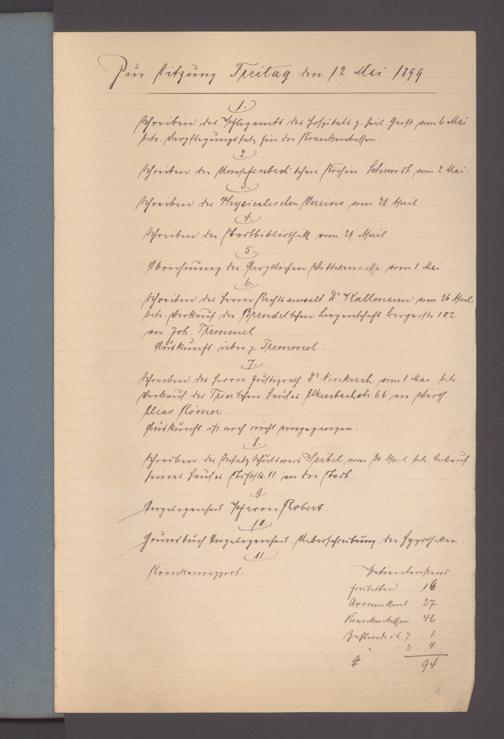 Zur Sitzung Freitag den 12 Mai 1899
1.
Schreiben des Pflegamts des Hospitals z. heil. Geist vom 6 Mai
betr. Verpflegungssatz für die Krankenkassen
2.
Schreiben der Köchin Schmidt vom 2 Mai
3.
Schreiben des Physicalischen Vereins vom 28 April
4.
Schreiben der Stadtbibliothek vom 29 April
5.
Abrechnung der Aerztlichen Wittwenkasse vom 1 Mai
6.
Schreiben des Herrn Rechtsanwalt Dr Kallmann vom 26 April
betr. Verkauf der Brendel'schen Liegenschaft Bergerstr 102
an Joh. Tremmel.
Auskunft über p. Tremmel.
7.
Schreiben des Herrn Justizrath Dr vom 1 Mai betr.
Verkauf des Trier'schen Hauses 66 an
Elias Römer.
Auskunft ist noch nicht eingegangen.
8.
Schreiben des Seibel vom 30 April betr. Verkauf
seines Hauses Stiftstr. 11 an die Stadt.
9
Angelegenheit Pfarrer Robert.
10
Grundbuch Angelegenheit. Ueberschreibung der Hypotheken.
11
Krankenrapport.
Patientenstand
Freibetten 16
Armenamt 27
Krankenkassen 46
1
" " 3 4
94